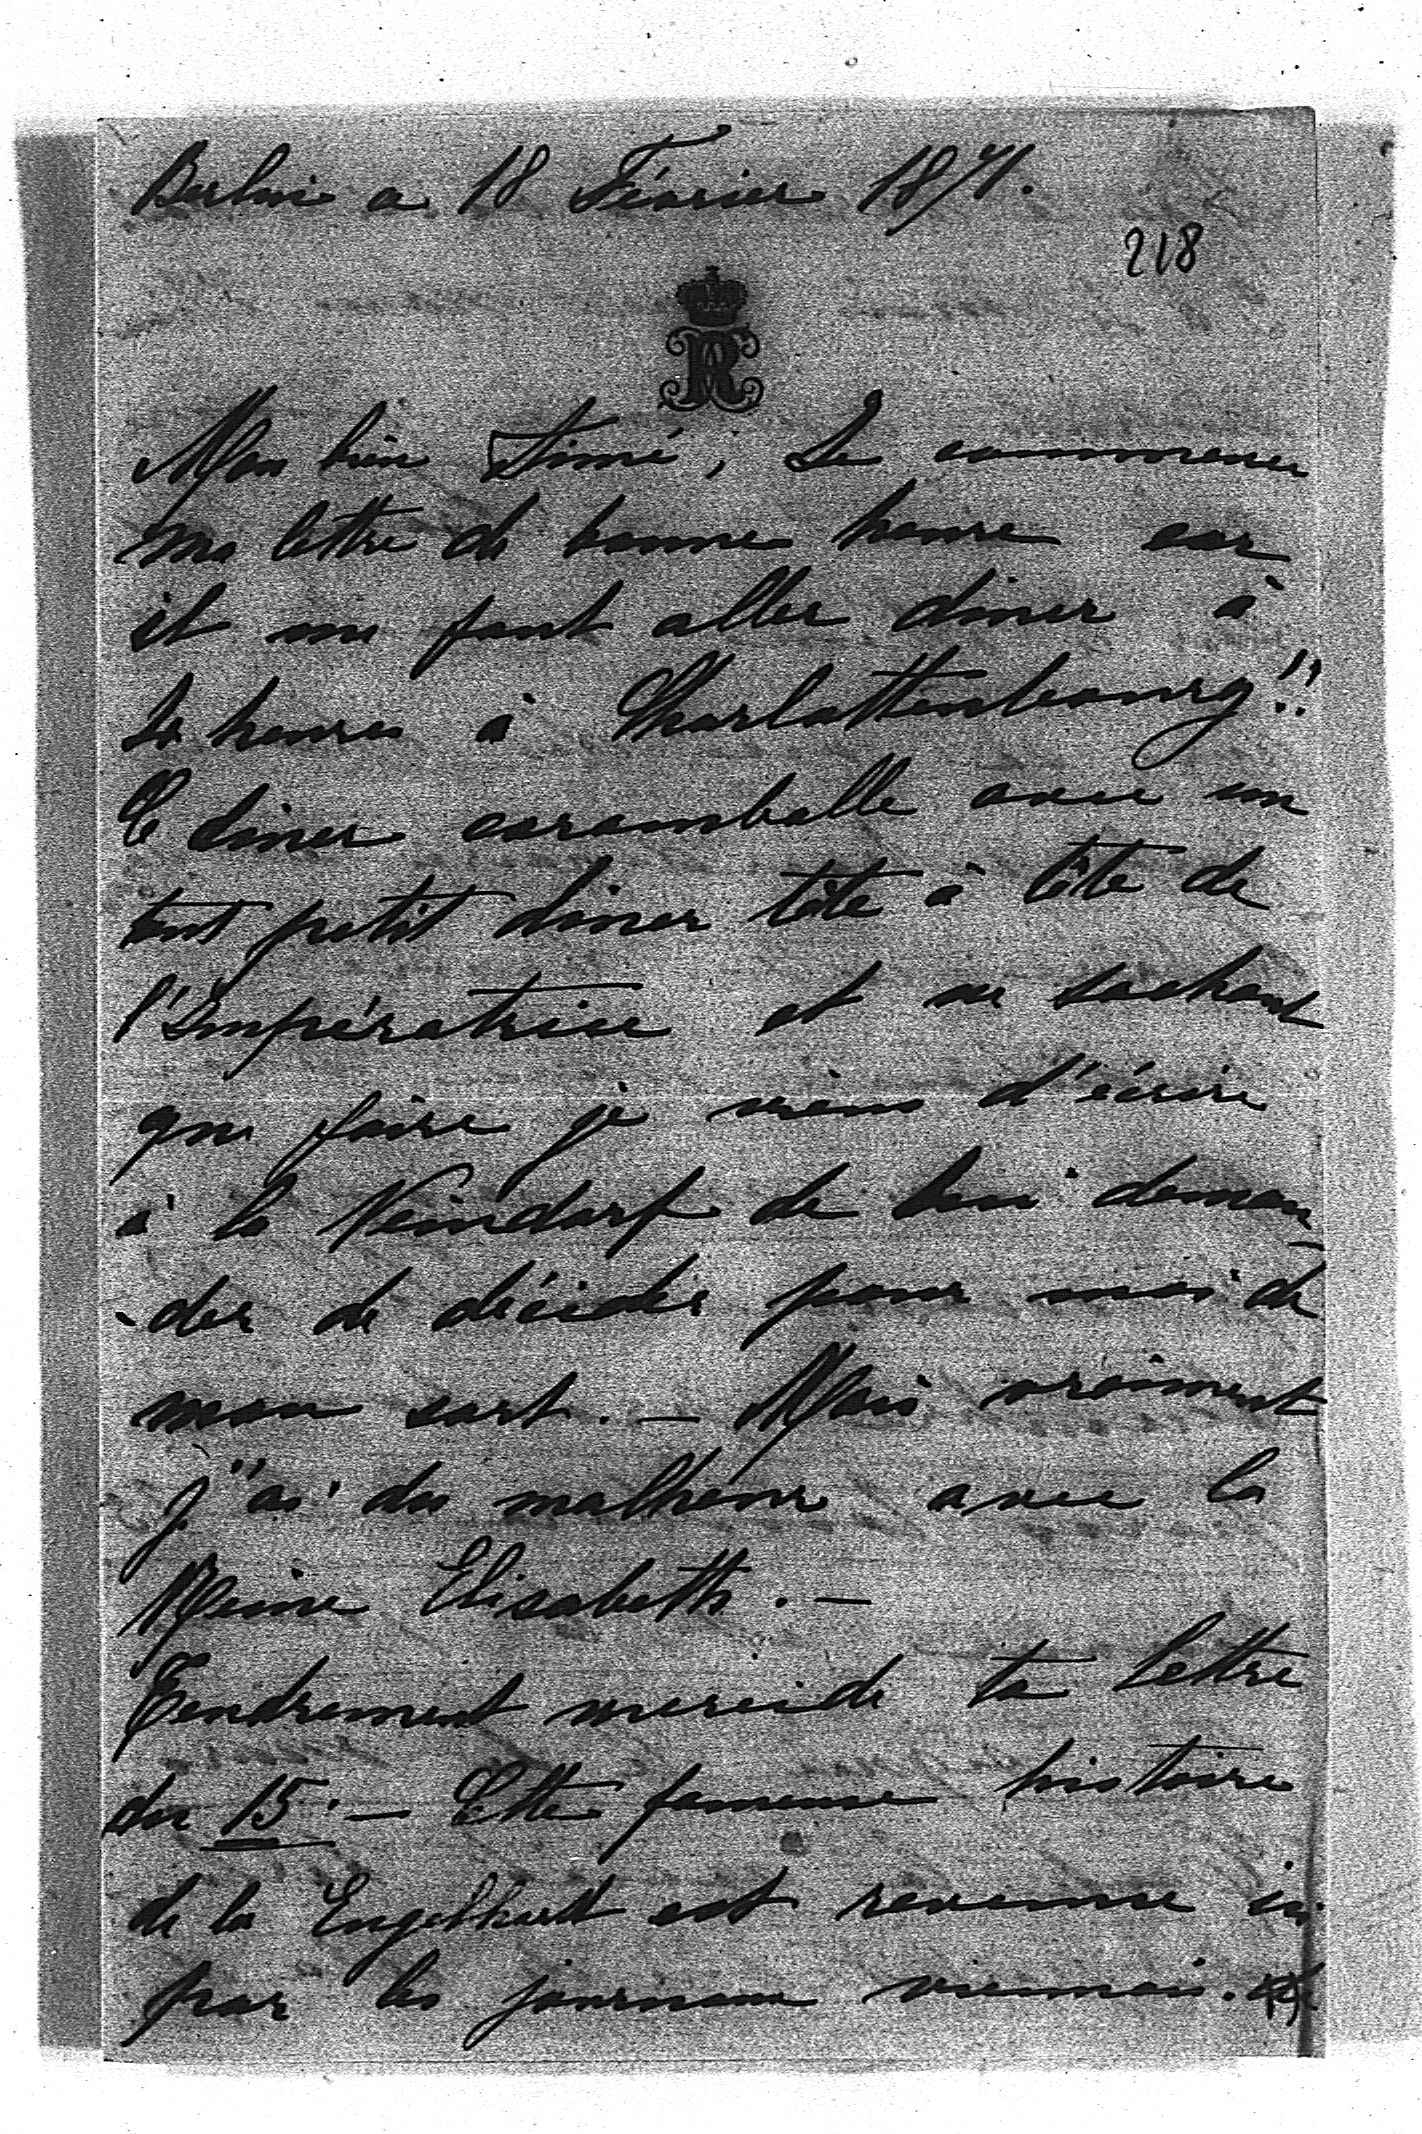 Berlin a 18 Février 1871.
218
R
Mon bien Aimé, Je commence
ma lettre de bonne heure car
il me faut aller diner à
4 heures à Charlottenbourg!!
Ce diner carambolle avec un
tout petit diner tête à tête de
l'Impératrice et ne sachant
que faire je viens d'écrire
à la Neindorf de lui deman
-der de décider pour moi de
mon sort. — Mais vraiment
j'ai du malheur avec la
Reine Elisabeth. —
Tendrement merci de ta lettre
du 15. — Cette fameuse histoire
de la Engelhart est revenue ici
par les journaux viennois.